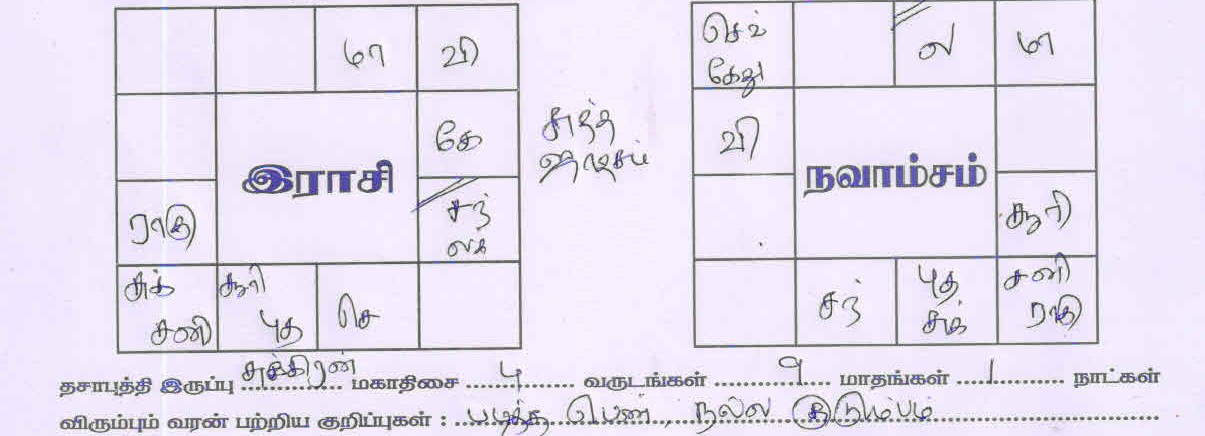 மா வி
கே
ராகு
சந்
லக்
சுக்
சனி
சூரி
புத
செ
இராசி
சுத்த
ஜாதகம்
செவ்
கேது
ல மா
வி
சூரி
சந்
புத
சுக்
சனி
ராகு
நவாம்சம்
தசாபுத்தி இருப்பு சுக்கிரன் மகாதிசை 4 வருடங்கள் 9 மாதங்கள் 1 நாட்கள்
விரும்பும் வரன் பற்றிய குறிப்புகள் : படித்த பெண், நல்ல குடும்பம்